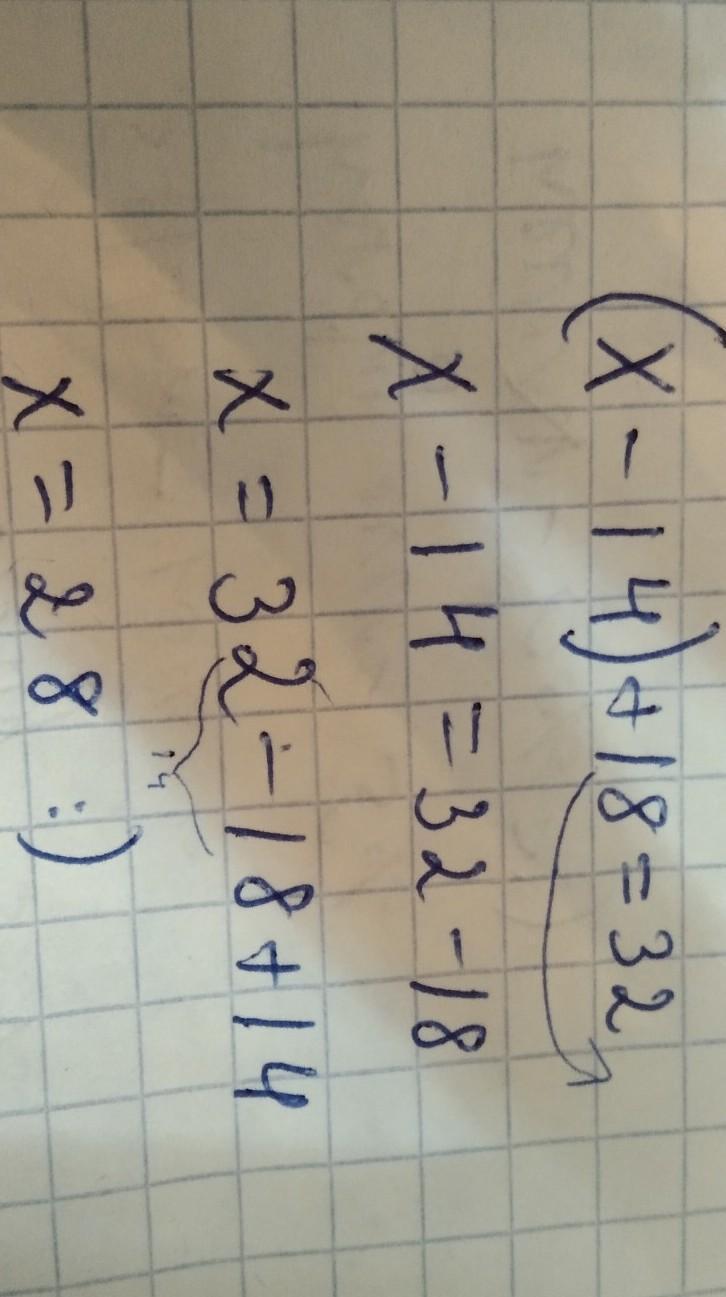 (x-14)+18=32
x-14=32-18
x=32-18+14
14
x=28 :)